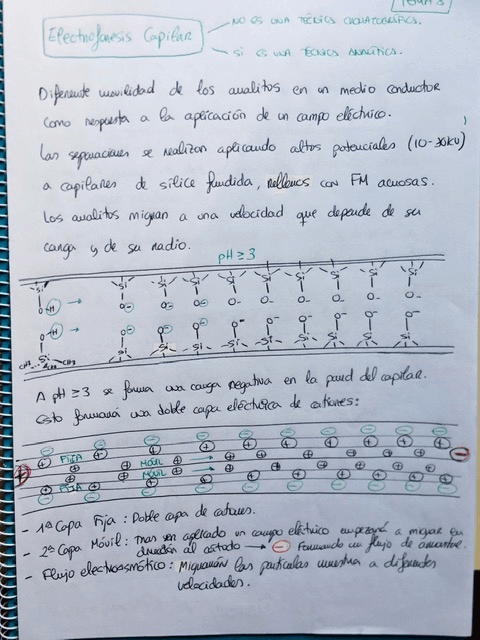 TEMA 3
Electroforesis Capilar
NO ES UNA TÉCNICA CROMATOGRÁFICA.
SÍ ES UNA TÉCNICA ANALÍTICA.
Diferente movilidad de los analitos en un medio conductor
como respuesta a la aplicación de un campo eléctrico.
Las separaciones se realizan aplicando altos potenciales (10-30kV)
a capilares de sílice fundida, rellenos con FM acuosas.
Los analitos migran a una velocidad que depende de su
carga y de su radio.
pH ≥ 3
Si Si Si Si Si Si Si Si Si
O O⊖ O⊖ O⊖ O- O- O- O- O-
H →
O H → O⊖ O⊖ O⊖ O- O- O- O- O-
Si Si Si Si Si Si Si Si Si
CH3 CH3
A pH ≥ 3 se forma una carga negativa en la pared del capilar.
Esto formará una doble capa eléctrica de cationes:
FIJA
MÓVIL →
MÓVIL →
FIJA
- 1ª Capa Fija: Doble capa de cationes.
- 2ª Capa Móvil: Tras ser aplicado un campo eléctrico empezará a migrar en
dirección al cátodo → ⊖ Formando un flujo de arrastre.
- Flujo electroosmótico: Migrarán las partículas muestra a diferentes
velocidades.